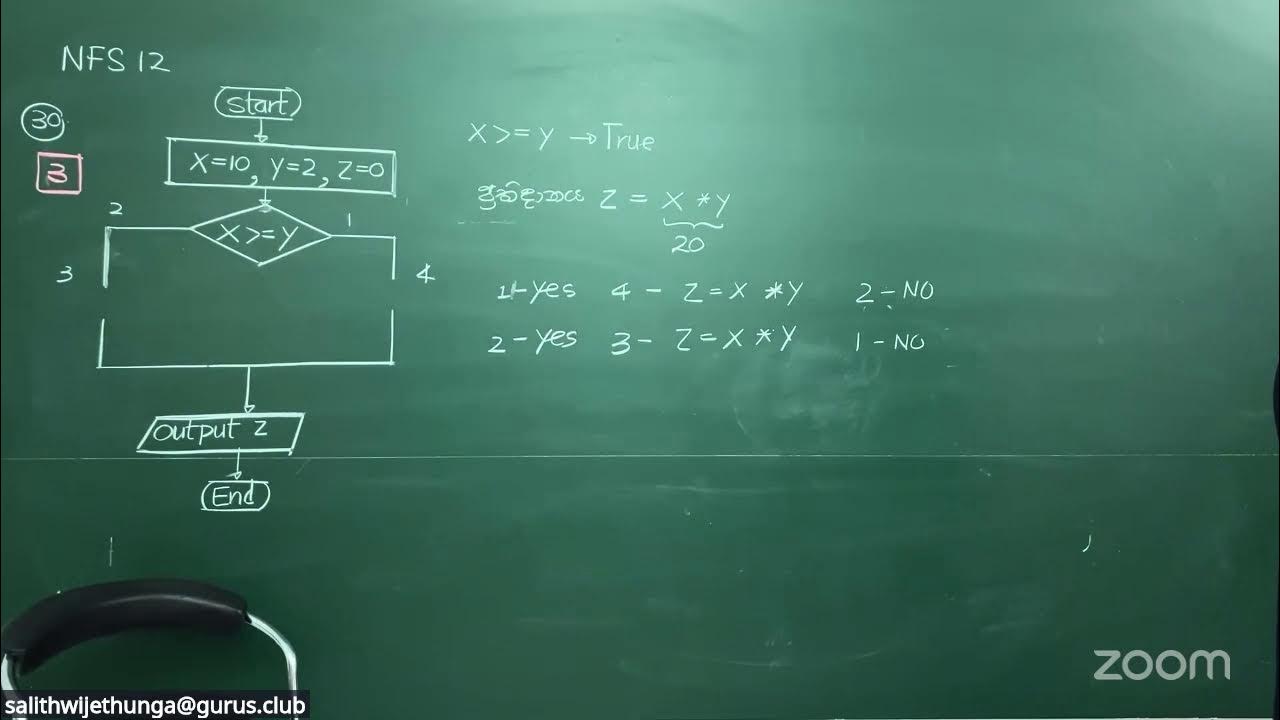 NFS 12
30
3
start
X=10, Y=2, Z=0
2
X>=Y
1
3
4
output Z
End
X>=Y → True
ප්‍රතිදානය Z = X * Y
20
1-yes 4 - Z = X * Y 2 - NO
2 - yes 3 - Z = X * Y 1 - NO
zoom
salithwijethunga@gurus.club